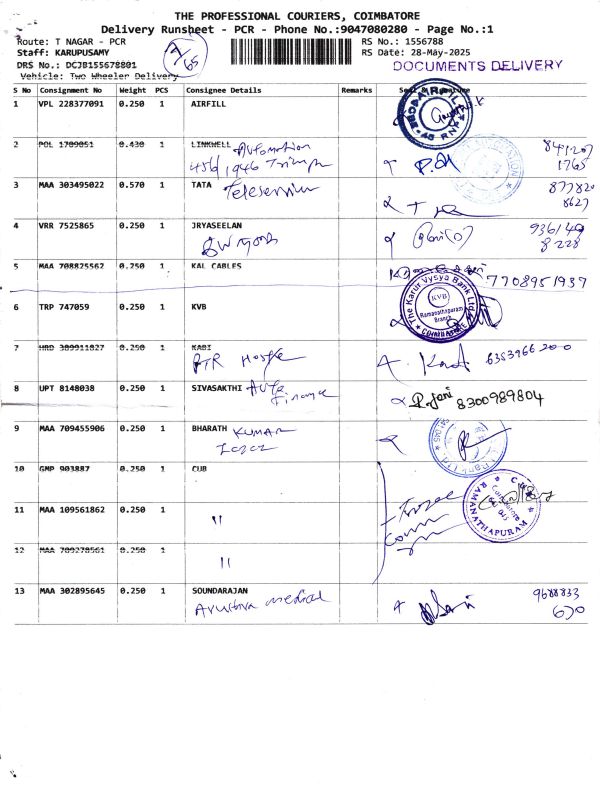 THE PROFESSIONAL COURIERS, COIMBATORE
Delivery Runsheet - PCR - Phone No.:9047080280 - Page No.:1
Route: T NAGAR - PCR
RS No.: 1556788
Staff: KARUPUSAMY
RS Date: 28-May-2025
DRS No.: DCJB155678801
DOCUMENTS DELIVERY
Vehicle: Two Wheeler Delivery
S No Consignment No Weight PCS Consignee Details Remarks
1 VPL 228377091 0.250 1 AIRFILL
2 POL 1709051 0.430 1 LINKWELL Automation
456/1946 Triumph
841207
1765
3 MAA 303495022 0.570 1 TATA Teleservices
877820
8627
4 VRR 7525865 0.250 1 JRYASEELAN
936149
8228
5 MAA 708825562 0.250 1 KAL CABLES
7708951937
6 TRP 747059 0.250 1 KVB
The Karur Vysya Bank Ltd
KVB
Ramanathapuram
Branch
COIMBATORE
7 HRD 389911827 0.250 1 KABI
PTR
8 UPT 8148038 0.250 1 SIVASAKTHI Auto
Finance
8300989804
9 MAA 709455906 0.250 1 BHARATH KUMAR
10 GMP 903887 0.250 1 CUB
RAMANATHAPURAM
11 MAA 109561862 0.250 1
"
12 MAA 709278561 0.250 1
"
13 MAA 302895645 0.250 1 SOUNDARAJAN
medical
9688833
670